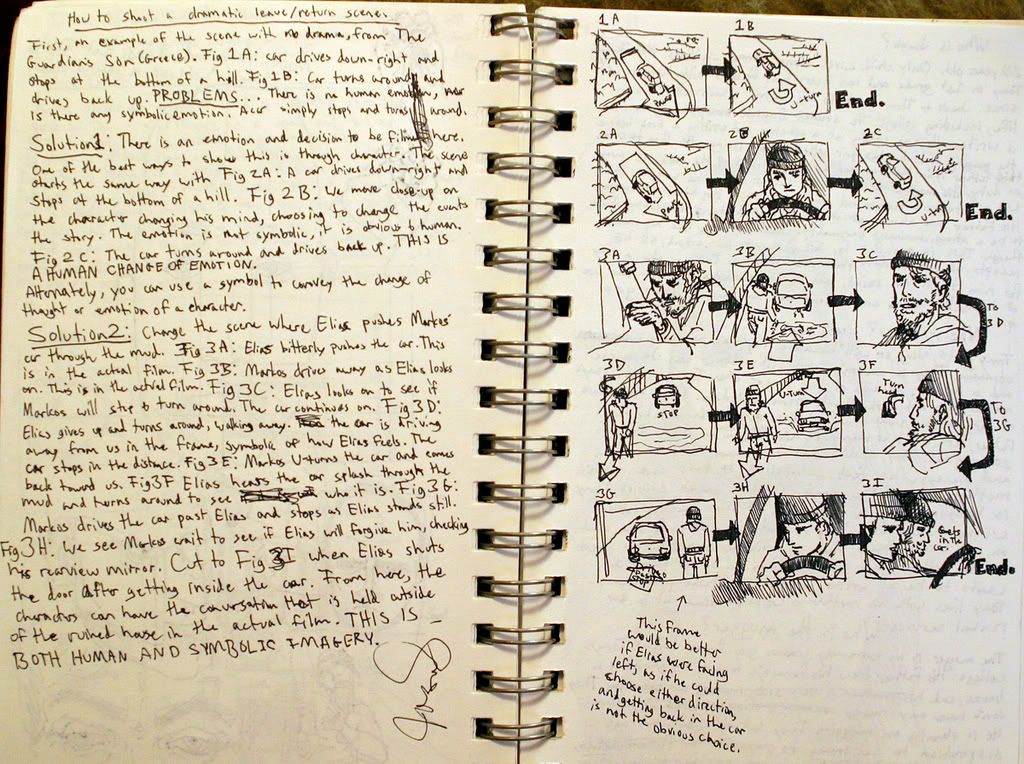 How to shoot a dramatic leave/return scene.
First, an example of the scene with no drama, from The
Guardian's Son (Greece). Fig 1A: car drives down-right and
stops at the bottom of a hill. Fig 1B: Car turns around and
drives back up. PROBLEMS... There is no human emotion, nor
is there any symbolic emotion. A car simply stops and turns around.
Solution 1: There is an emotion and decision to be filmed here.
One of the best ways to show this is through character. The scene
starts the same way with Fig 2A: A car drives down-right and
stops at the bottom of a hill. Fig 2B: We move close-up on
the character changing his mind, choosing to change the events
of the story. The emotion is not symbolic, it is obvious & human.
Fig 2C: The car turns around and drives back up. THIS IS
A HUMAN CHANGE OF EMOTION.
Alternately, you can use a symbol to convey the change of
thought or emotion of a character.
Solution 2: Change the scene where Elias pushes Markos'
car through the mud. Fig 3A: Elias bitterly pushes the car. This
is in the actual film. Fig 3B: Markos drives away as Elias looks
on. This is in the actual film. Fig 3C: Elias looks on to see if
Markos will stop & turn around. The car continues on. Fig 3D:
Elias gives up and turns around, walking away. the car is driving
away from us in the frame, symbolic of how Elias feels. The
car stops in the distance. Fig 3E: Markos U-turns the car and comes
back toward us. Fig 3F Elias hears the car splash through the
mud and turns around to see who it is. Fig 3G:
Markos drives the car past Elias and stops as Elias stands still.
Fig 3H: We see Markos wait to see if Elias will forgive him, checking
his rearview mirror. Cut to Fig 3I when Elias shuts
the door after getting inside the car. From here, the
characters can have the conversation that is held outside
of the ruined house in the actual film. THIS IS
BOTH HUMAN AND SYMBOLIC IMAGERY.
1A
1B
U-turn
End.
2A
2B
2C
U-turn
End.
3A
3B
3C
To
3D
3D
STOP
3E
U-turn
3F
Turn
head
To
3G
3G
STOP
3H
3I
Elias
in the
car.
End.
This frame
would be better
if Elias were facing
left, as if he could
choose either direction,
and getting back in the car
is not the obvious choice.